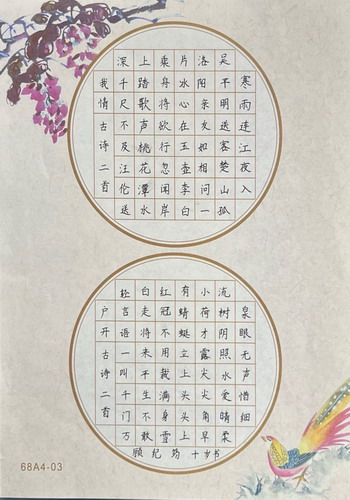 寒雨连江夜入
吴平明送客楚山孤
洛阳亲友如相问一
片冰心在玉壶李白
乘舟将欲行忽闻岸
上踏歌声桃花潭水
深千尺不及汪伦送
我情古诗二首
泉眼无声惜细
流树阴照水爱晴柔
小荷才露尖尖角早
有蜻蜓立上头头上
红冠不用裁满身雪
白走将来平生不敢
轻言语一叫千门万
户开古诗二首
顾纪筠十岁书
68A4-03